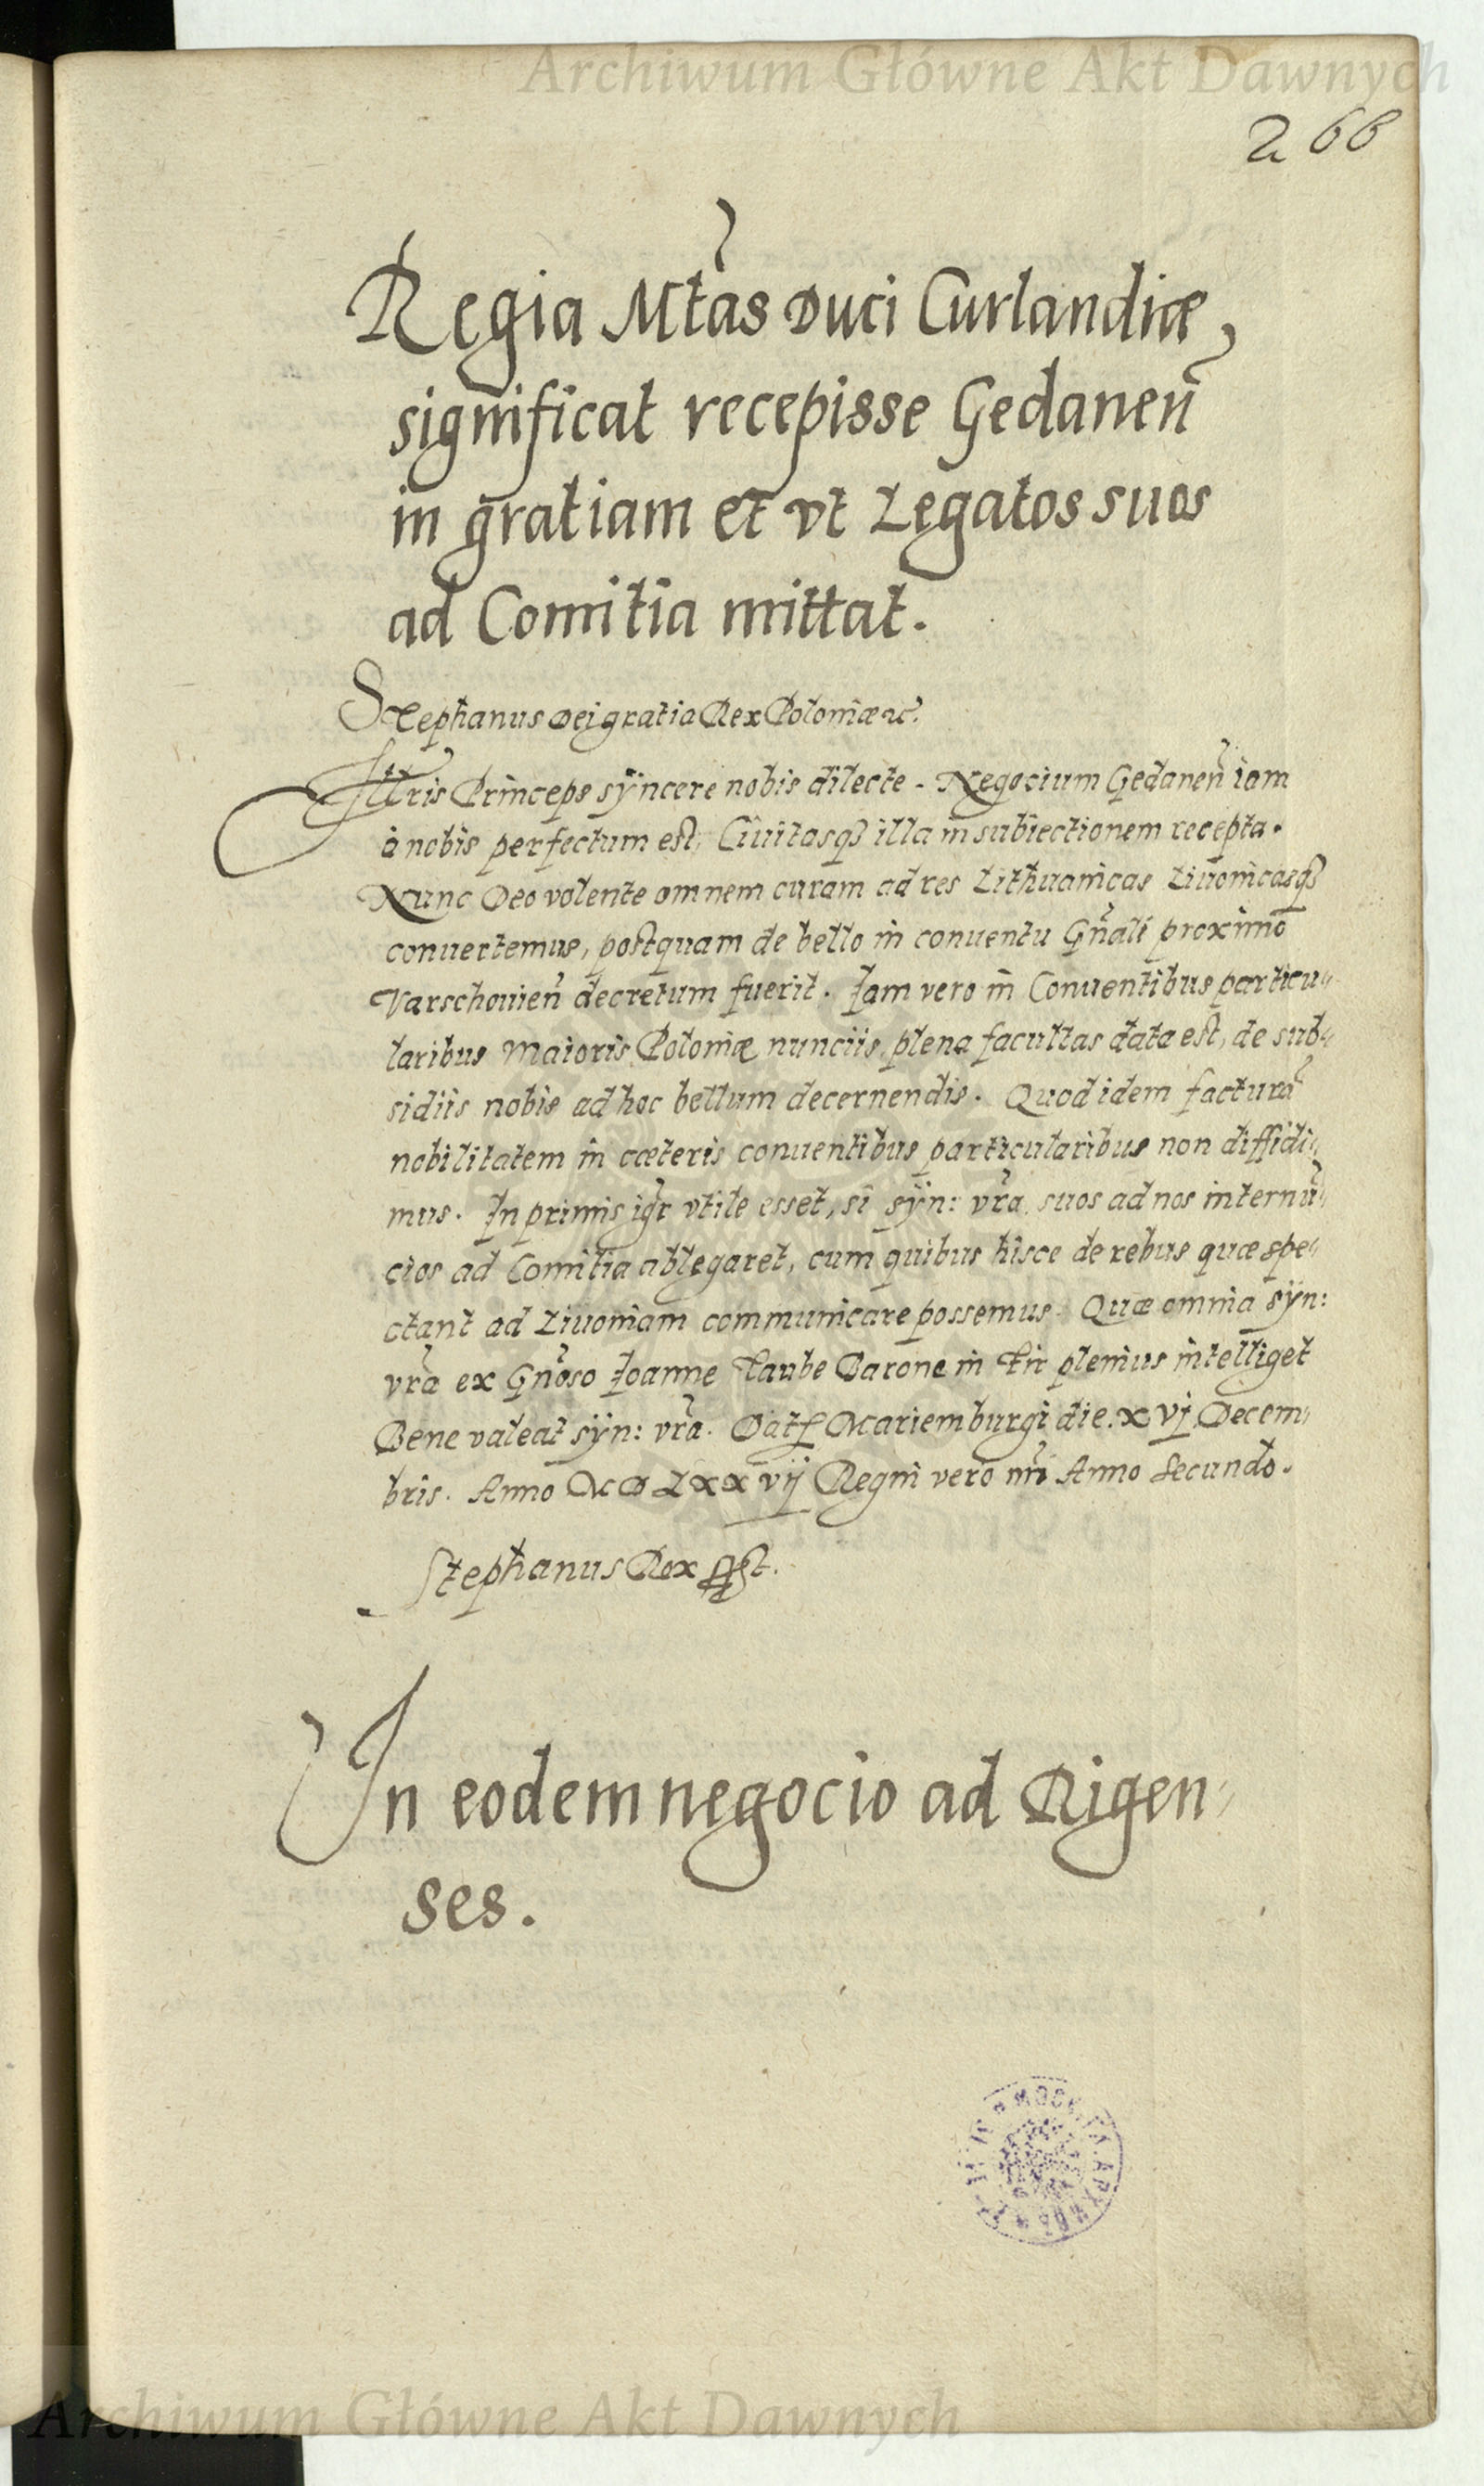 Archiwum Główne Akt Dawnych
266
Regia Mtas Duci Curlandiæ
significat recepisse Gedanen̄
in gratiam et vt Legatos suos
ad Comitia mittat.
Stephanus Dei gratia Rex Poloniæ ꝛc.
Illris Princeps sÿncere nobis dilecte - Negocium Gedanen̄ iam
à nobis perfectum est, Ciuitasq₃ illa in subiectionem recepta.
Nunc Deo volente omnem curam ad res Lithuanicas Liuonicasq₃
conuertemus, postquam de bello in conuentu Gn̄ali proximo
Varschouien̄ decretum fuerit. Iam vero in Conuentibus particu„
laribus Maioris Poloniæ nunciis, plena facultas data est, de sub„
sidiis nobis ad hoc bellum decernendis. Quod idem facturā
nobilitatem in cæteris conuentibus particularibus non diffidi„
mus. In primis igr̄ vtile esset, si sÿn: vr̄a suos ad nos internū„
cios ad Comitia ablegaret, cum quibus hisce de rebus quæ spe„
ctant ad Liuoniam communicare possemus. Quæ omnia sÿn:
vr̄a ex Gn̄oso Ioanne Taube Barone in Fir plenius intelliget
Bene valeat sÿn: vr̄a. Dat Mariemburgi die. xvj Decem„
bris. Anno MDLxxvij Regni vero nr̄i Anno Secundo.
Stephanus Rex sst.
In eodem negocio ad Rigen„
ses.
Archiwum Główne Akt Dawnych